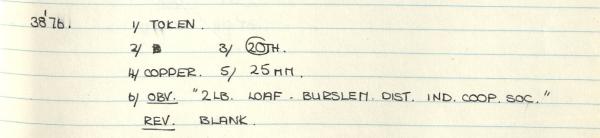 38'76. 1/ TOKEN.
2/ 3/ 20TH.
4/ COPPER. 5/ 25MM.
6/ OBV. "2LB. LOAF. BURSLEM. DIST. IND. COOP. SOC."
REV. BLANK.